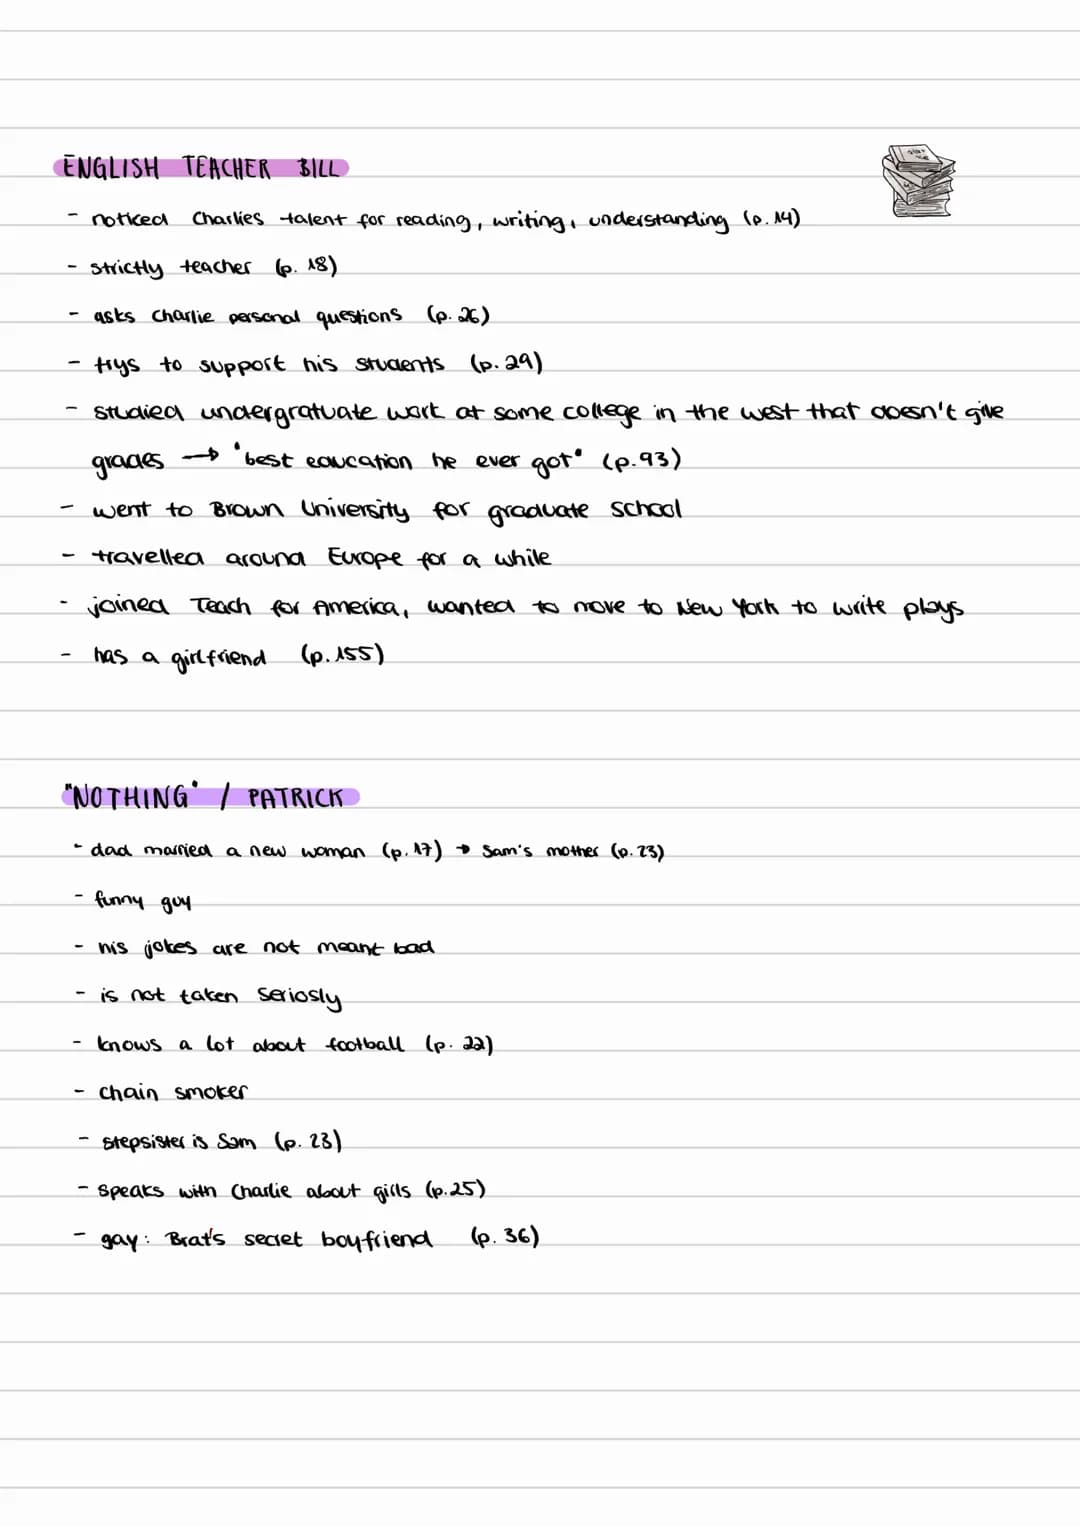 ENGLISH TEACHER BILL
- noticed Charlies talent for reading, writing, understanding (p. 14)
- strictly teacher (p. 18)
- asks Charlie personal questions (p. 26)
- trys to support his students (p. 29)
- studied undergratuate work at some college in the west that doesn't give
grades → "best education he ever got" (p.93)
- went to Brown University for graduate school
- travelled around Europe for a while
- joined Teach for America, wanted to move to New York to write plays
- has a girlfriend (p. 155)
"NOTHING" / PATRICK
- dad married a new woman (p. 17) → Sam's mother (p. 23)
- funny guy
- his jokes are not meant bad
- is not taken seriosly
- knows a lot about football (p. 22)
- chain smoker
- stepsister is Sam (p. 23)
- speaks with Charlie about girls (p. 25)
- gay: Brat's secret boyfriend (p. 36)